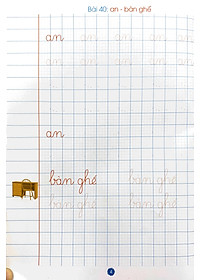 Bài 40: an - bàn ghế
an an an an an
an an an an an
an
bàn ghế bàn ghế
bàn ghế bàn ghế
4